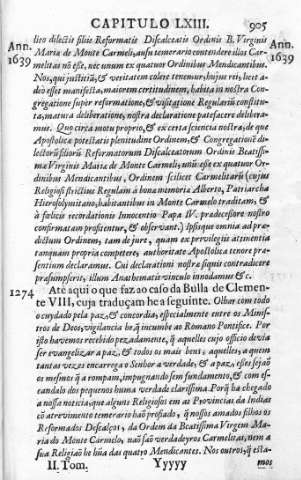 CAPITULO LXIII. 905
Ann. 1639
Ann. 1639
lito dilectis filiis Reformatis Discalceatis Ordinis B. Virginis
Maria de Monte Carmeli, ausu temerario contendere illos Car-
melitas nõ esse, nec unum ex quatuor Ordinibus Mendicantibus.
Nos, qui justitiã, & veritatem colere tenemur, hujus rei, licet a-
deò esset manifesta, maiorem certitudinem, habita in nostra Con-
gregatione super reformatione, & visitatione Regulariũ constitu-
ta, matura deliberatione, nostra declaratione patefacere delibera-
mus. Quo circa motu proprio, & ex certa scientia nostra, de que
Apostolica potestatis plenitudine Ordinem, & Congregationẽ di-
lectorũ filiorũ Reformatorum Discalceatorum Ordinis Beatissi-
ma Virginis Maria de Monte Carmeli; unũ esse ex quatuor Or-
dinibus Mendicantibus, Ordinem scilicet Carmelitarũ (cujus
Religiosi strictius Regulam à bona memoria Alberto, Patriarcha
Hierosolymitano, habitantibus in Monte Carmelo traditam, &
à felicis recordationis Innocentio Papa IV. pradecessore nostro
confirmatam profitentur, & observant.) ipsique omnia ad pra-
dictum Ordinem, tam de jure, quam ex privilegiis attinentia
tanquam propria competere, authoritate Apostolica tenore pra-
sentium declaramus. Cui declarationi nostra siquis contradicere
prasumpserit, illum Anathematis vinculo innodamus &c.
1274 Atè aqui o que faz ao caso da Bulla de Clemen-
te VIII, cuja traduçam he a seguinte. Olhar com todo
o cuydado pela paz, & concordia, especialmente entre os Minis-
tros de Deos, vigilancia he, q̃ incumbe ao Romano Pontifice. Por
isso havemos recebido pezadamente, q̃ aquelles cujo officio devia
ser evangelizar a paz, & todos os mais bens, aquelles, a quem
tantas vezes encarrega o Senhor a verdade, & a paz, esses sejaõ
os mesmos q̃ a rompam, impugnando sem fundamento, & com es-
candalo dos pequenos huma verdade clarissima. Porq̃ ha chegado
a nossa noticia, que alguns Religiosos em as Provincias da Indias
cõ atrevimento temerario haõ profiado, q̃ nossos amados filhos os
Reformados Descalços, da Ordem da Beatissima Virgem Ma-
ria do Monte Carmelo, naõ saõ verdadeyros Carmelitas, nem a
sua Religiaõ he hũa das quatro Mendicantes. Nos outros, q̃ esta-
II. Tom. Yyyyy mos